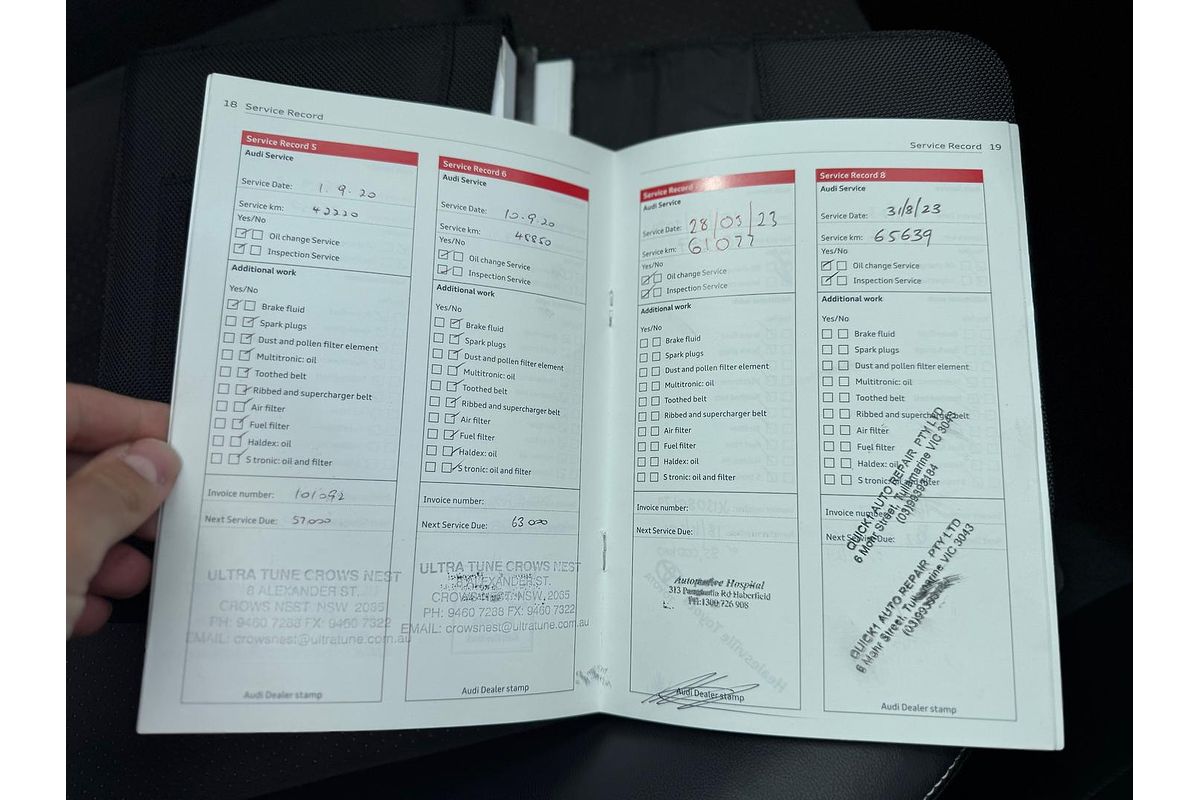 18 Service Record
Service Record 5
Audi Service
Service Date: 1.9.20
Service km: 42220
Yes/No
Oil change Service
Inspection Service
Additional work
Yes/No
Brake fluid
Spark plugs
Dust and pollen filter element
Multitronic: oil
Toothed belt
Ribbed and supercharger belt
Air filter
Fuel filter
Haldex: oil
S tronic: oil and filter
Invoice number: 101092
Next Service Due: 57000
ULTRA TUNE CROWS NEST
8 ALEXANDER ST.
CROWS NEST NSW, 2065
PH: 9460 7288 FX: 9460 7322
EMAIL: crowsnest@ultratune.com.au
Audi Dealer stamp
Service Record 6
Audi Service
Service Date: 10.9.20
Service km: 48850
Yes/No
Oil change Service
Inspection Service
Additional work
Yes/No
Brake fluid
Spark plugs
Dust and pollen filter element
Multitronic: oil
Toothed belt
Ribbed and supercharger belt
Air filter
Fuel filter
Haldex: oil
S tronic: oil and filter
Invoice number:
Next Service Due: 63000
ULTRA TUNE CROWS NEST
8 ALEXANDER ST.
CROWS NEST NSW, 2065
PH: 9460 7288 FX: 9460 7322
EMAIL: crowsnest@ultratune.com.au
Audi Dealer stamp
Service Record 19
Service Record
Audi Service
Service Date: 28/03/23
Service km: 61077
Yes/No
Oil change Service
Inspection Service
Additional work
Yes/No
Brake fluid
Spark plugs
Dust and pollen filter element
Multitronic: oil
Toothed belt
Ribbed and supercharger belt
Air filter
Fuel filter
Haldex: oil
S tronic: oil and filter
Invoice number:
Next Service Due:
Automotive Hospital
313 Rd Haberfield
PH:1300 726 908
Audi Dealer stamp
Service Record 8
Audi Service
Service Date: 31/8/23
Service km: 65639
Yes/No
Oil change Service
Inspection Service
Additional work
Yes/No
Brake fluid
Spark plugs
Dust and pollen filter element
Multitronic: oil
Toothed belt
Ribbed and supercharger belt
Air filter
Fuel filter
Haldex: oil
S tronic: oil and filter
Invoice number:
Next Service Due:
QUICK1 AUTO REPAIR PTY LTD
6 Mohr Street, Tullamarine VIC 3043
QUICK1 AUTO REPAIR PTY LTD
6 Mohr Street, Tullamarine VIC 3043
Audi Dealer stamp